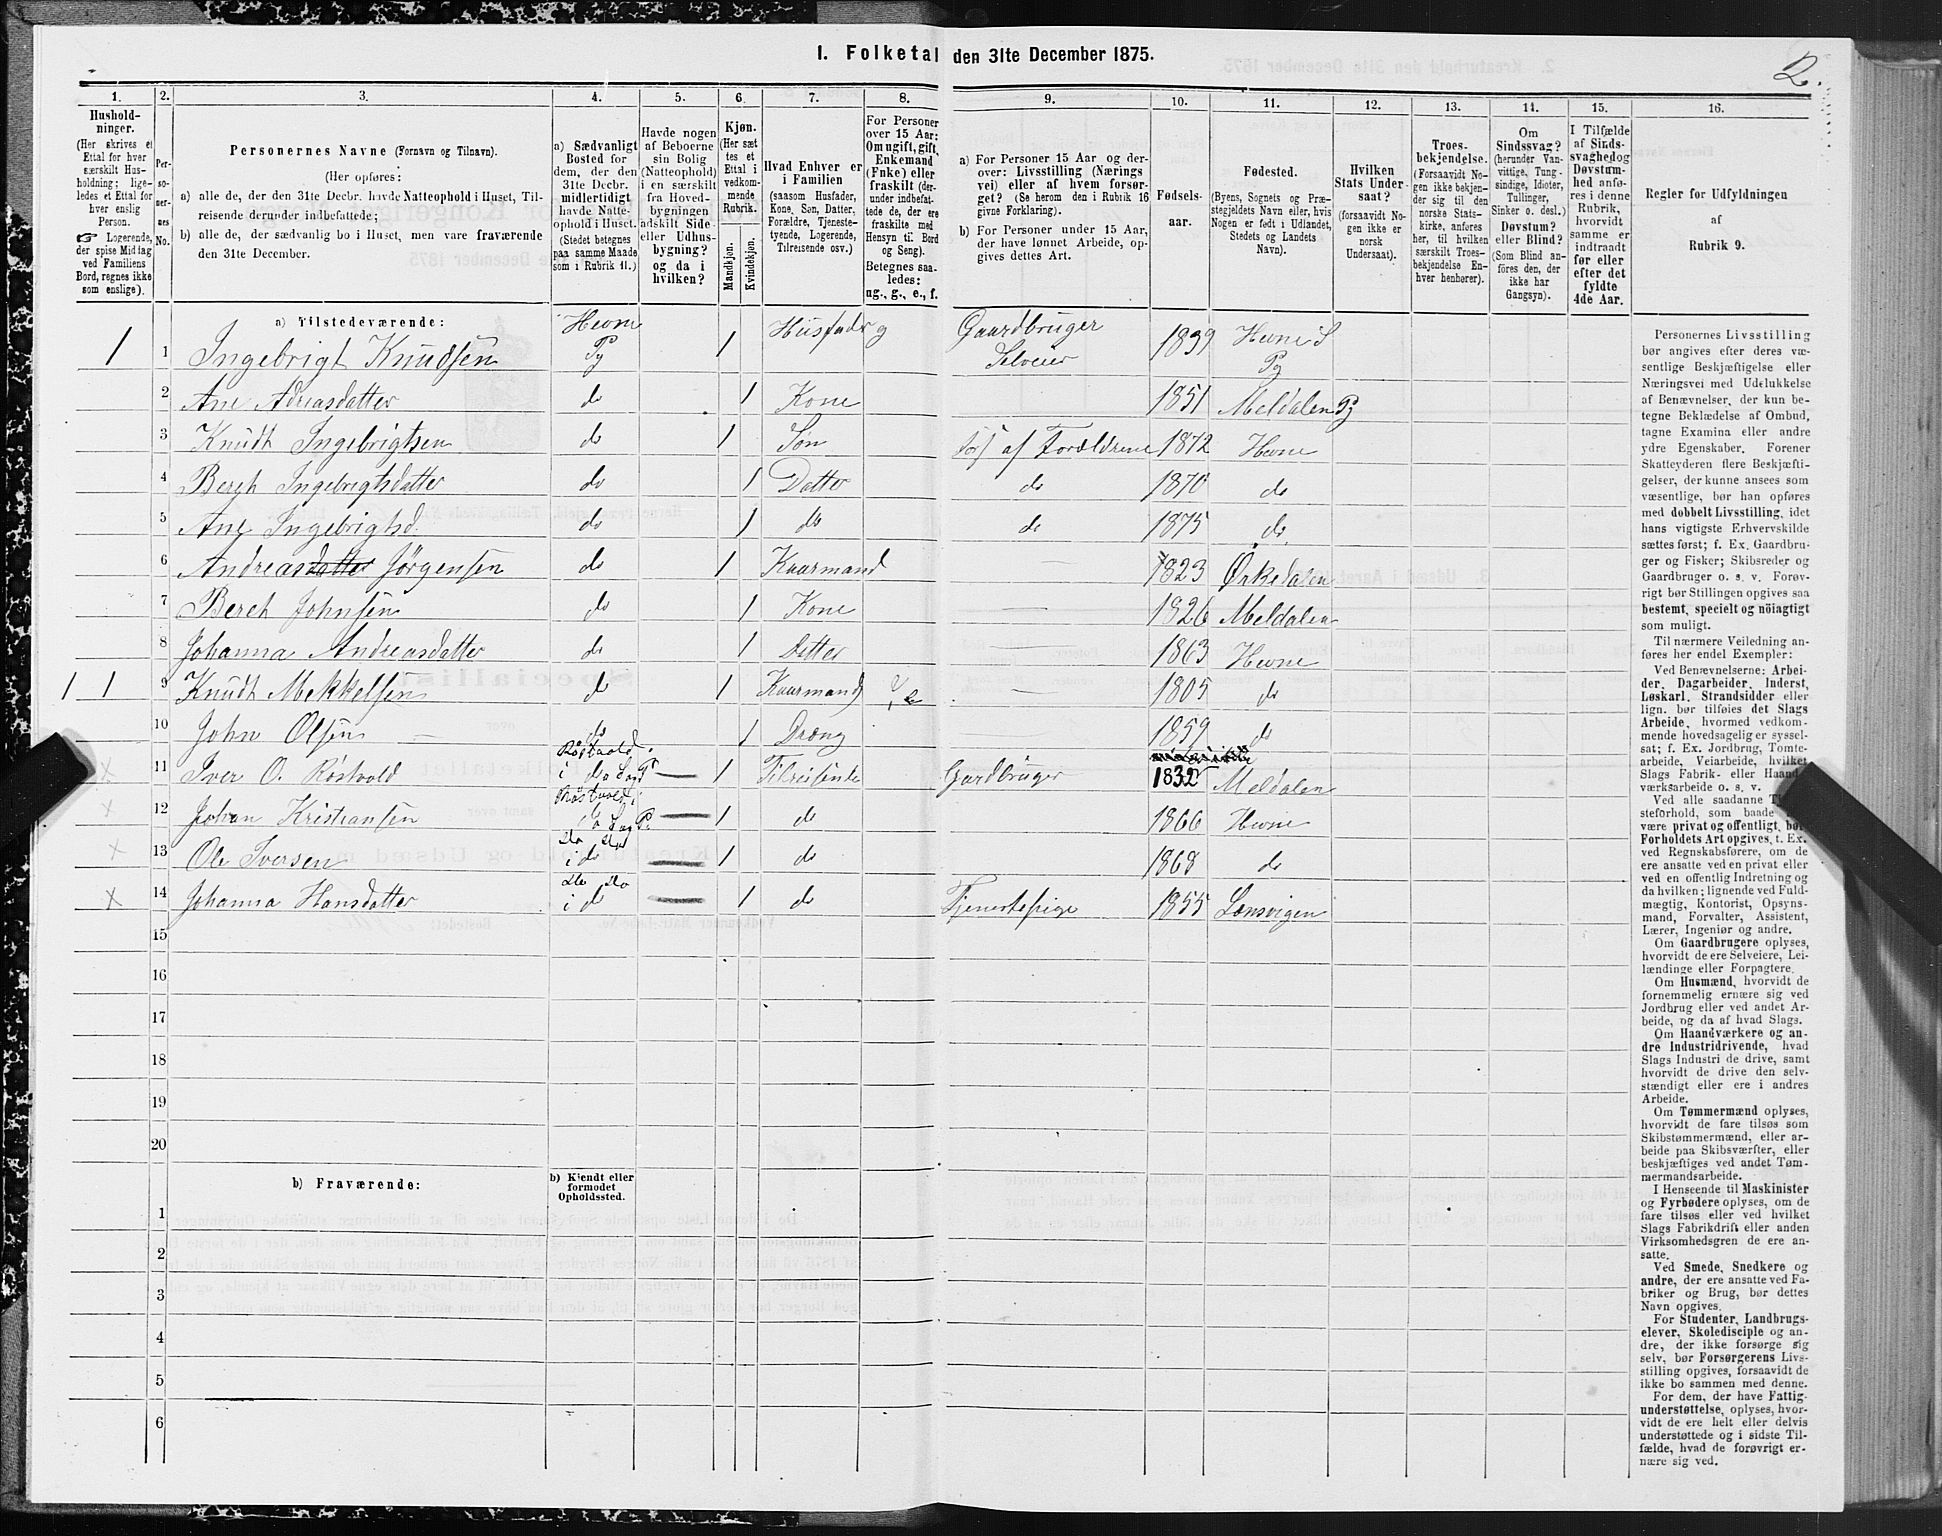 1. Folketal den 31te December 1875.
2.
1. 2. 3. 4. 5. 6. 7. 8. 9. 10. 11. 12. 13. 14. 15. 16.
Hushold-
ninger.
(Her skrives et
Ettal for hver
særskilt Hus-
holdning; lige-
ledes et Ettal for
hver enslig
Person.
☞ Logerende,
der spise Middag
ved Familiens
Bord, regnes ikke
som enslige).
Per-
so-
ner-
nes
No.
Personernes Navne (Fornavn og Tilnavn).
(Her opføres:
a) alle de, der den 31te Decbr. havde Natteophold i Huset, Til-
reisende derunder indbefattede;
b) alle de, der sædvanlig bo i Huset, men vare fraværende
den 31te December.
a) Sædvanligt
Bosted for
dem, der den
31te Decbr.
midlertidigt
havde Natte-
ophold i Huset.
(Stedet betegnes
paa samme Maade
som i Rubrik 11.)
Havde nogen
af Beboerne
sin Bolig
(Natteophold)
i en særskilt
fra Hoved-
bygningen
adskilt Side-
eller Udhus-
bygning?
og da i
hvilken?
Kjøn.
(Her sæt-
tes et
Ettal i
vedkom-
mende
Rubrik.
Mandkjøn.
Kvindekjøn.
Hvad Enhver er
i Familien
(saasom Husfader,
Kone, Søn, Datter,
Forældre, Tjeneste-
tyende, Logerende,
Tilreisende osv.)
For Personer
over 15 Aar:
Om ugift, gift,
Enkemand
(Enke) eller
fraskilt (der-
under indbefat-
tede de, der ere
fraskilte med
Hensyn til Bord
og Seng).
Betegnes saa-
ledes:
ug., g., e., f.
a) For Personer 15 Aar og der-
over: Livsstilling (Nærings
vei) eller af hvem forsør-
get? (Se herom den i Rubrik 16
givne Forklaring).
b) For Personer under 15 Aar,
der have lønnet Arbeide, op-
gives dettes Art.
Fødsels-
aar.
Fødested.
(Byens, Sognets og Præ-
stegjeldets Navn eller, hvis
Nogen er født i Udlandet,
Stedets og Landets
Navn).
Hvilken
Stats Under-
saat?
(forsaavidt No-
gen ikke er
norsk
Undersaat).
Troes-
bekjendelse.
(Forsaavidt No-
gen ikke bekjen-
der sig til den
norske Stats-
kirke, anføres
her, til hvilken
særskilt Troes-
bekjendelse En-
hver henhører).
Om
Sindssvag?
(herunder Van-
vittige, Tung-
sindige, Idioter,
Tullinger,
Sinker o. desl.)
Døvstum?
eller Blind?
(Som Blind an-
føres den, der
ikke har
Gangsyn).
I Tilfælde
af Sinds-
svaghed og
Døvstum-
hed anfø-
res i denne
Rubrik,
hvorvidt
samme er
indtraadt
før eller
efter det
fyldte
4de Aar.
Regler for Udfyldningen
af
Rubrik 9.
a) Tilstedeværende:
1 1 Ingebrigt Knudsen Hevne Pg 1 Husfader g Gaardbruger Selveier 1839 Hevne S Pg
2 Ane Adreasdatter do 1 Kone 1851 Meldalen Pg
3 Knudt Ingebrigtsen do 1 Søn fors af Forældrene 1872 Hevne
4 Bergh Ingebrigtsdatter do 1 Datter do 1870 do
5 Ane Ingebrigtsd. do 1 do do 1875 do
6 Andreasdatter Jörgensen do 1 Kaarmand 1823 Örkedalen
7 Bereh Johnsen do 1 Kone — 1826 Meldalen
8 Johanna Andreasdatter do 1 Datter — 1863 Hevne
1 1 9 Knudt Mekkelsen do 1 Kaarmand e — 1805 do
10 John Olsen — do 1 Dræng 1859 do
x 11 Iver O. Röstvold i do — 1 Tilreisende Gardbruger 1832 Meldalen
x 12 Johan Kristiansen do — 1 do 1866 Hevne
x 13 Ole Iversen do do i do — 1 do 1868 do
x 14 Johanna Hansdatter do do i do — 1 do Tjenestepige 1855 Lensvigen
15
16
17
18
19
20
b) Fraværende:
b) Kjendt eller
formodet
Opholdssted.
1
2
3
4
5
6
Personernes Livsstilling
bør angives efter deres væ-
sentlige Beskjæftigelse eller
Næringsvei med Udelukkelse
af Benævnelser, der kun be-
tegne Beklædelse af Ombud,
tagne Examina eller andre
ydre Egenskaber. Forener
Skatteyderen flere Beskjæfti-
gelser, der kunne ansees som
væsentlige, bør han opføres
med dobbelt Livsstilling, idet
hans vigtigste Erhvervskilde
sættes først; f. Ex. Gaardbru-
ger og Fisker; Skibsreder og
Gaardbruger o. s. v. Forøv-
rigt bør Stillingen opgives saa
bestemt, specielt og nöiagtigt
som muligt.
Til nærmere Veiledning an-
føres her endel Exempler:
Ved Benævnelserne: Arbei-
der, Dagarbeider, Inderst,
Løskarl, Strandsidder eller
lign. bør tilføies det Slags
Arbeide, hvormed vedkom-
mende hovedsagelig er syssel-
sat; f. Ex. Jordbrug, Tomte-
arbeide, Veiarbeide, hvilket
Slags Fabrik- eller Haand-
værksarbeide o. s. v.
Ved alle saadanne
steforhold, som baade
være privat og offentligt, bør
Forholdets Art opgives, t. Ex.
ved Regnskabsførere, om de
ere ansatte ved en privat eller
ved en offentlig Indretning og
da hvilken; lignende ved Fuld-
mægtig, Kontorist, Opsyns-
mand, Forvalter, Assistent,
Lærer, Ingeniør og andre.
Om Gaardbrugere oplyses,
hvorvidt de ere Selveiere, Lei-
lændinge eller Forpagtere.
Om Husmænd, hvorvidt de
fornemmelig ernære sig ved
Jordbrug eller ved andet Ar-
beide, og da af hvad Slags.
Om Haandværkere og an-
dre Industridrivende, hvad
Slags Industri de drive, samt
hvorvidt de drive den selv-
stændigt eller ere i andres
Arbeide.
Om Tømmermænd oplyses,
hvorvidt de fare tilsøs som
Skibstømmermænd, eller ar-
beide paa Skibsværfter, eller
beskjæftiges ved andet Tøm-
mermandsarbeide.
I Henseende til Maskinister
og Fyrbødere oplyses, om de
fare tilsøs eller ved hvilket
Slags Fabrikdrift eller anden
Virksomhedsgren de ere an-
satte.
Ved Smede, Snedkere og
andre, der ere ansatte ved Fa-
briker og Brug, bør dettes
Navn opgives.
For Studenter, Landbrugs-
elever, Skoledisciple og an-
dre, der ikke forsørge sig
selv, bør Forsørgerens Livs-
stilling opgives, forsaavidt de
ikke bo sammen med denne.
For dem, der have Fattig-
understøttelse, oplyses, hvor-
vidt de ere helt eller delvis
understøttede og i sidste Til-
fælde, hvad de forøvrigt er-
nære sig ved.